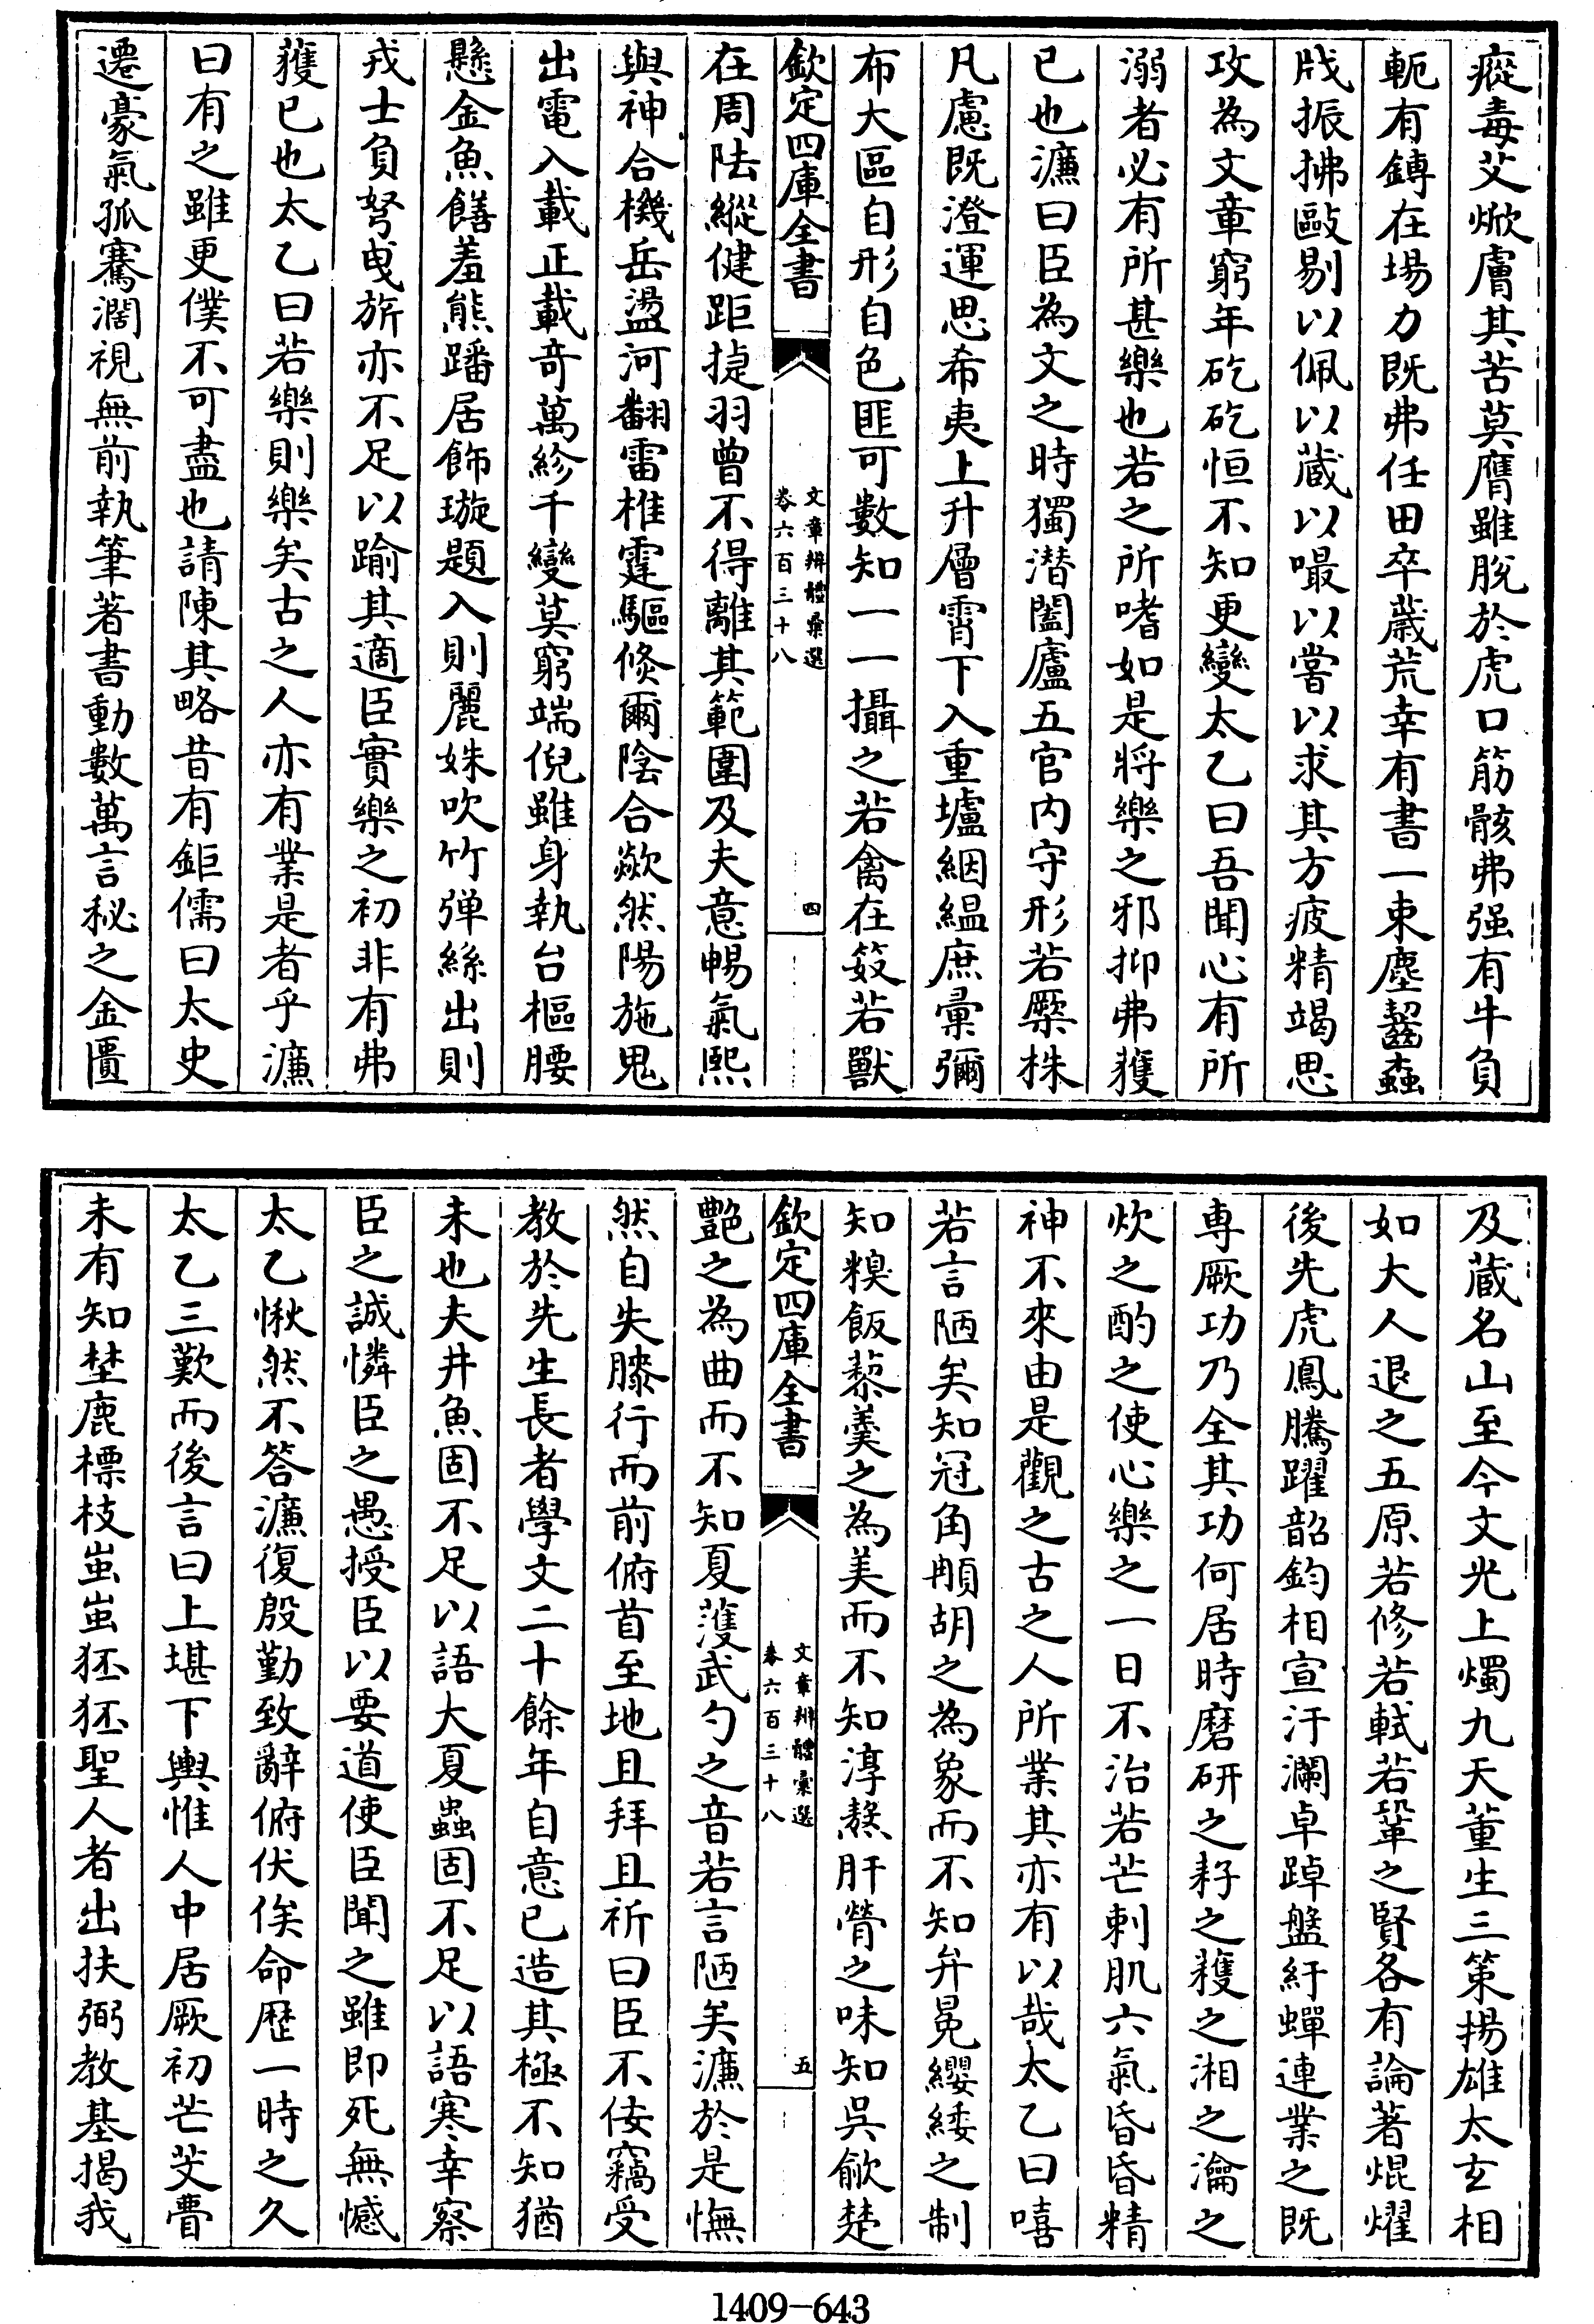 瘲毒艾焮膚其苦莫膺雖脫於虎口筋骸弗强有牛負
軛有鎛在場力既弗任田卒歲荒幸有書一束塵齧蟲
戕振拂毆剔以佩以藏以嘬以嘗以求其方疲精竭思
攻為文章窮年矻矻恒不知更變太乙曰吾聞心有所
溺者必有所甚樂也若之所嗜如是將樂之邪抑弗獲
已也濂曰臣為文之時獨潛闔廬五官内守形若橜株
凡慮既澄運思希夷上升層霄下入重壚絪緼庶彙彌
布大區自形自色匪可數知一一攝之若禽在笯若獸
欽定四庫全書
文章辨體彙選
卷六百三十八
四
在周阹縱健距捷羽曾不得離其範圍及夫意暢氣熙
與神合機岳盪河翻雷椎霆驅倐爾陰合歘然陽施鬼
出電入載正載奇萬紾千變莫窮端倪雖身執台樞腰
懸金魚饍羞熊蹯居飾璇題入則麗姝吹竹彈絲出則
戎士負弩曳旂亦不足以踰其適臣實樂之初非有弗
獲已也太乙曰若樂則樂矣古之人亦有業是者乎濂
曰有之雖更僕不可盡也請陳其略昔有鉅儒曰太史
遷豪氣孤騫濶視無前執筆著書動數萬言秘之金匱
及藏名山至今文光上燭九天董生三策揚雄太玄相
如大人退之五原若修若軾若鞏之賢各有論著焜燿
後先虎鳳騰躍韶鈞相宣汙瀾卓踔盤紆蟬連業之既
専厥功乃全其功何居時磨研之耔之穫之湘之瀹之
炊之酌之使心樂之一日不治若芒刺肌六氣昏昏精
神不來由是觀之古之人所業其亦有以哉太乙曰嘻
若言陋矣知冠角䫇胡之為象而不知弁冕纓緌之制
知糗飯藜羹之為美而不知淳熬肝膋之味知吳歈楚
欽定四庫全書
文章辨體彙選
卷六百三十八
五
艷之為曲而不知夏濩武勺之音若言陋矣濂於是憮
然自失膝行而前俯首至地且拜且祈曰臣不佞竊受
教於先生長者學文二十餘年自意已造其極不知猶
未也夫井魚固不足以語大夏蟲固不足以語寒幸察
臣之誠憐臣之愚授臣以要道使臣聞之雖即死無憾
太乙愀然不答濂復殷勤致辭俯伏俟命歴一時之久
太乙三歎而後言曰上堪下輿惟人中居厥初芒芠瞢
未有知埜鹿標枝蚩蚩狉狉聖人者出扶弼教基揭我
1409-643